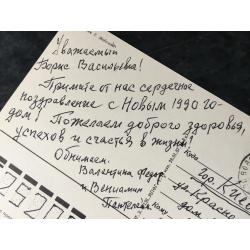 Уважаемый
Борис Васильевич!
Примите от нас сердечное
поздравление с Новым 1990 го-
дом! Пожелаем доброго здоровья,
успехов и счастья в жизни!
Обнимаем.
Валентина, Федор
и Вениамин
Куда
гор. Кие
ул. Красно
дом
Кому